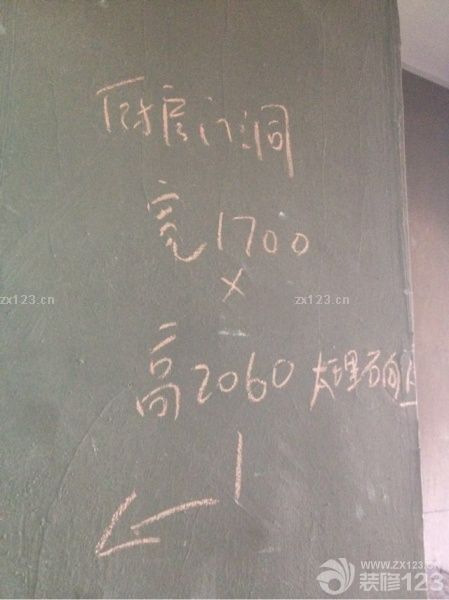 厨房门洞
宽1700
×
zx123.cn
zx123.cn
高2060 大理石向上
WWW.ZX123.CN
装修123